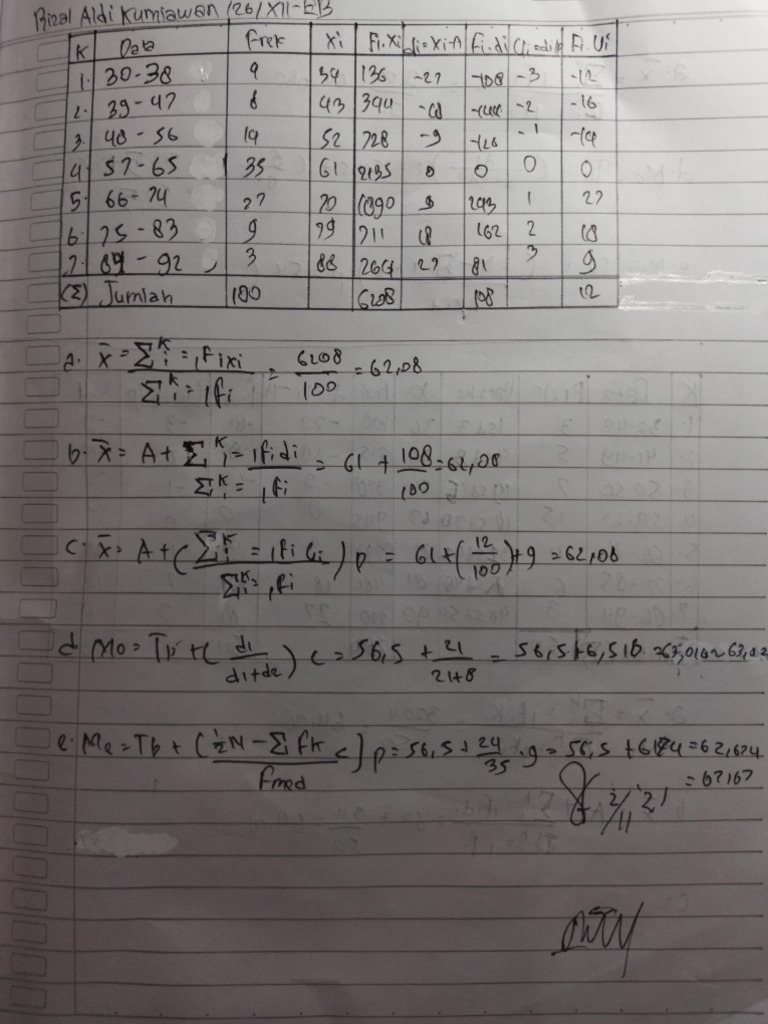 Rizal Aldi Kurniawan /26/XII-EB
K Data Frek Xi Fi.Xi di=Xi-A Fi.di Ui=di/p Fi.Ui
1. 30-38 4 34 136 -27 -108 -3 -12
2. 39-47 8 43 344 -18 -144 -2 -16
3. 48-56 14 52 728 -9 -126 -1 -14
4. 57-65 35 61 2135 0 0 0 0
5. 66-74 27 70 1890 9 243 1 27
6. 75-83 9 79 711 18 162 2 18
7. 84-92 3 88 264 27 81 3 9
(Σ) Jumlah 100 6208 108 12
a. x̄ = Σᵏᵢ=₁fixi / Σᵏᵢ=₁fi = 6208/100 = 62,08
b. x̄ = A + Σᵏᵢ=₁fidi / Σᵏᵢ=₁fi = 61 + 108/100 = 62,08
c. x̄ = A + (Σᵏᵢ=₁fi Ui / Σᵏᵢ=₁fi) p = 61 + (12/100) + 9 = 62,08
d. Mo = Tb + (d1/d1+d2) c = 56,5 + 21/21+8 = 56,5 + 6,516 = 63,016 = 63,02
e. Me = Tb + (½N - Σ fk c / fmed) p = 56,5 + 24/35 . 9 = 56,5 + 6,174 = 62,674
= 62,67
2/11 '21